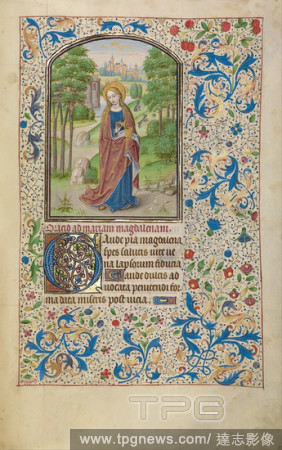 Oratio ad mariam magdalenam.
Gaude pia magdalena
spes salutis vite ve
na lapsorum fiducia
Gaude dulcis ad
vocata penitendi for
ma data miseris post vicia.
TPG
www.tpgnews.com/達志影像